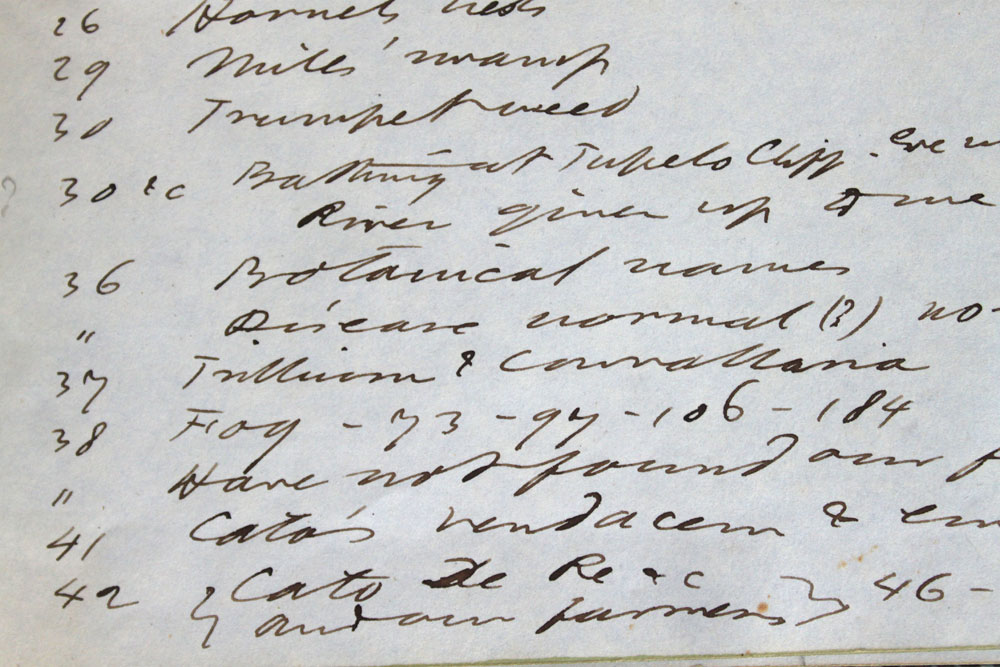 26 Hornets nests
29 Miles' swamp
30 Trumpet weed
30 &c Bathing at Tupelo Cliff.
River given up to me
36 Botanical names
" Disease normal (?) no
37 Trillium & Convallaria
38 Fog - 73 - 97 - 106 - 184
" Have not found our
41 Cato's vendacem &
42 { Cato De Re &c } 46 -
and our farmers